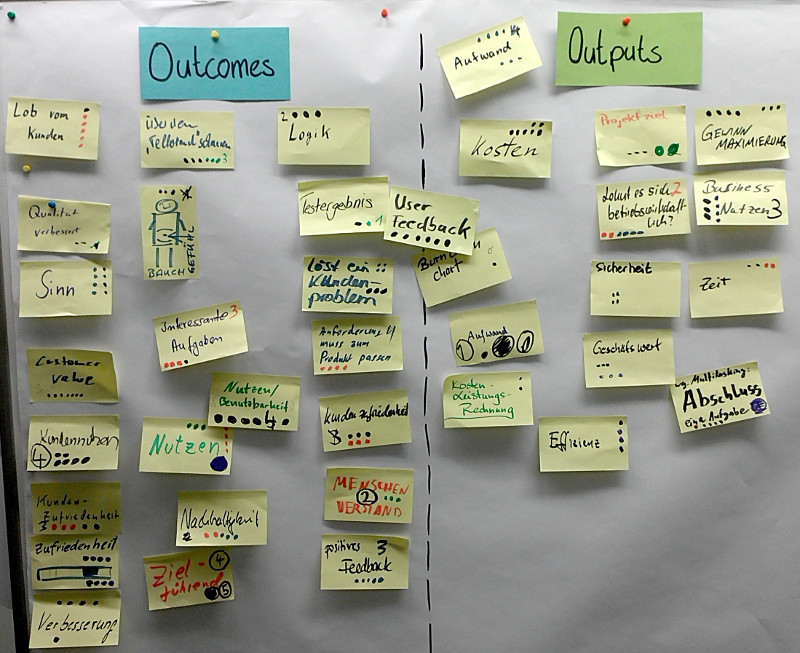 Outcomes
Lob vom
Kunden
Über den
Tellerrand schauen
3
2
Logik
Qualität
verbessert
BAUCH
GEFÜHL
Testergebnis
1
User
Feedback
Sinn
Löst ein
Kunden-
problem
Interessante 3
Aufgaben
Anforderung
muss zum
Produkt passen
Customer
value
Nutzen/
Benutzbarkeit
4
Kundenzufriedenheit
8
Kundennutzen
4
Nutzen
Kunden-
Zufriedenheit
3
MENSCHEN
2
VERSTAND
Nachhaltigkeit
2
Zufriedenheit
positives 3
Feedback
Ziel-
führend
4
5
Verbesserung
Outputs
4
Aufwand
Kosten
Projektziel
GEWINN
MAXIMIERUNG
Lohnt es sich 2
betriebswirtschaft-
lich?
Business
Nutzen 3
Burn
chart
Sicherheit
Zeit
Aufwand
1
1
Geschäftswert
Kosten-
Leistungs-
Rechnung
wg. Multitasking:
Abschluss
einer Aufgabe
Effizienz